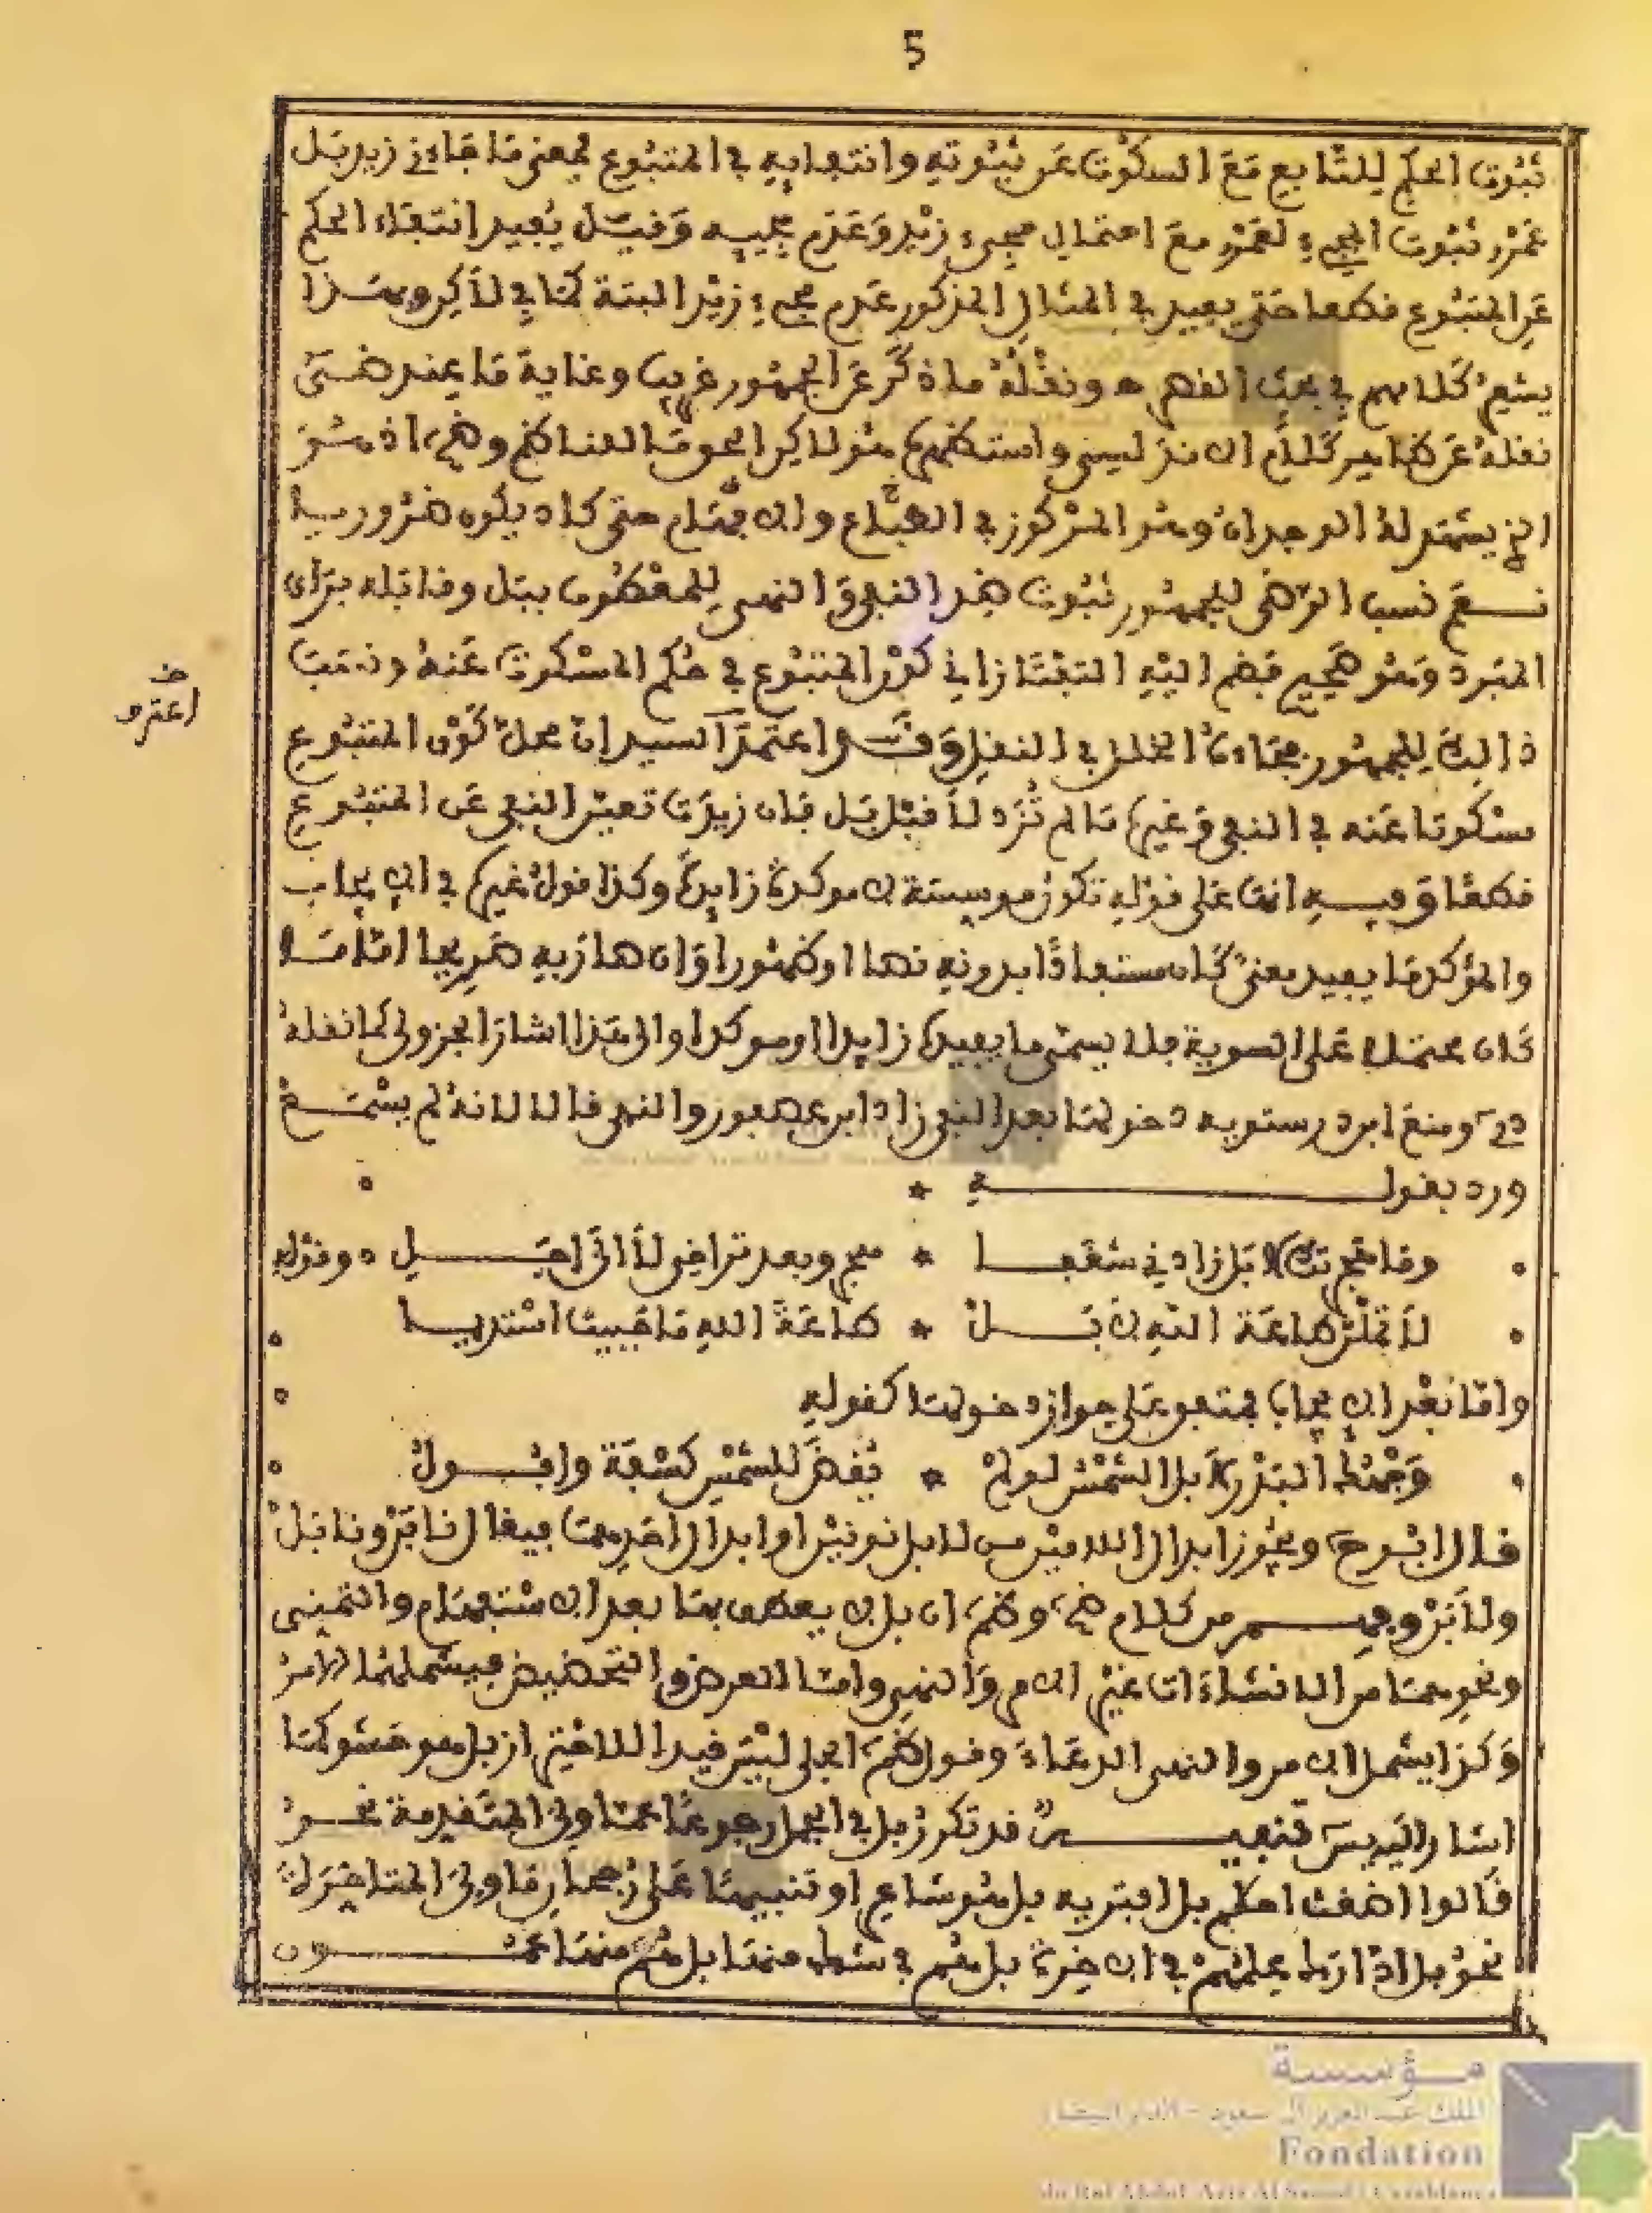 5
ثبوت الحكم للتابع مع السكوت عن ثبوته وانتفايه في المتبوع فمعنى ما جاءني زيد بل
عمرو ثبوت المجيء لعمرو مع احتمال مجيء زيد وعدم مجييه وقيل يفيد انتفاء الحكم
عن المتبوع قطعا حتى يفيد في المثال المذكور عدم مجيء زيد البتة كما في لاكن وهذا
كلامهم في بحث القصر ونقله ما ذكر عن الجمهور غريب وغاية ما عند
نقله عن ظاهر كلام الاندلسي واستظهر هو لاكن الحق مما للناظم وضح اذ هو
الذي يشهد له الوجدان وهو المركوز في الطباع والافهام حتى كاد يكون ضروريا
نعم نسب الرضي للجمهور ثبوت ضد النفي والنهي للمعطوف ببل وقابله براي
المبرد وهو صحيح فضم اليه التفتازاني كون المتبوع في حكم المسكوت عنه ونسب
ذالك للجمهور فجاءه الخلل في النقل وقد اعتمد السيد ان محل كون المتبوع
مسكوتا عنه في النفي وغيره ما لم تزد لا قبل بل فان زيدت تعين النفي عن المتبوع
قطعا وفيه انها على قوله تكون موسسة لا موكدة زايدة وكذا قول غيره في الايجاب
والمؤكد ما يفيد معنى كان مستفادا بدونه نصا او ظهورا وان صار به صريحا اما ما
كان محتملا على السوية فلا يسمى ما يفيده زايدا او موكدا والى هذا اشار الجزولي كما نقله
دى ومنع ابن درستويه دخولها بعد النفي زاد ابن عصفور والنهي قالا لانه لم يسمع
ورد بقوله
وما هجرتك لا بل زادني شغفا * هجر وبعد تراخي لا الى اجل وقوله
لا تملن طاعة الله لا بل * طاعة الله ما حييت استديما
واما بعد الايجاب فمتفق على جواز دخولها كقوله
وجهك البدر لا بل الشمس لو لم * يقض للشمس كسفة وافول
قال ابو ح ويجوز ابدال اللامين من لا بل نونين او ابدال احديهما فيقال نا بن ونا بل
ولا بن وفهم من كلام ض وظم ان بل لا يعطف بها بعد الاستفهام والتمني
ونحوهما من الانشاءات غير الامر والنهي واما العرض والتحضيض فيشملهما الامر
وكذا يشمل الامر والنهي الدعاء وقول ظم الجلي ليس قيدا للاخير از بل هو حشو كما
اشار اليه يس تنبيه قد تكرر بل في الجمل رجوعا عما ولي المتقدمة نحو
قالوا اضغاث احلم بل افتريه بل هو شاعر او تنبيها على رجحان ما ولي المتاخرة
نحو بل ادارك علمهم في الاخرة بل هم في شك منها بل هم منها عمون
اعترض
مؤسسة
الملك عبد العزيز آل سعود - الدار البيضاء
Fondation
du Roi Abdul-Aziz Al Saoud - Casablanca